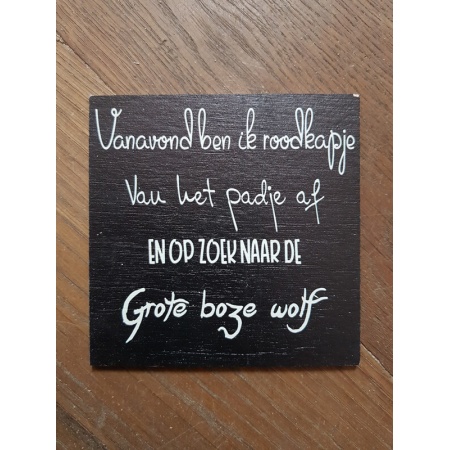 Vanavond ben ik roodkapje
Van het padje af
EN OP ZOEK NAAR DE
Grote boze wolf